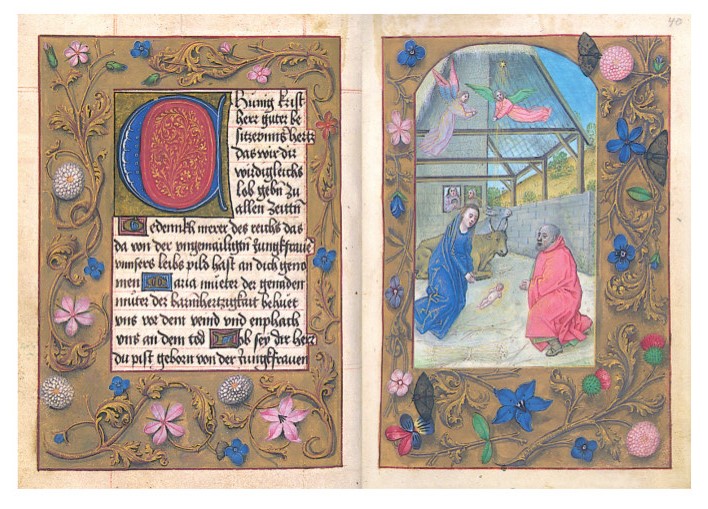 Kunig Krist
herr guter be
sitz vnns hertz
das wir dir
wirdigleichs
lob gebn zu
allen zeittn
Gedennkh merer des reichs das
da von der vngemailign Jungkfrawe
vnnsers leibs pild hast an dich geno
men Maria mueter der genaden
mueter der barmhertzigkeit behuet
vns vor dem veind vnd enphach
vns an dem tod Lob sey dir herr
du pist geborn von der Jungkfrauen
40